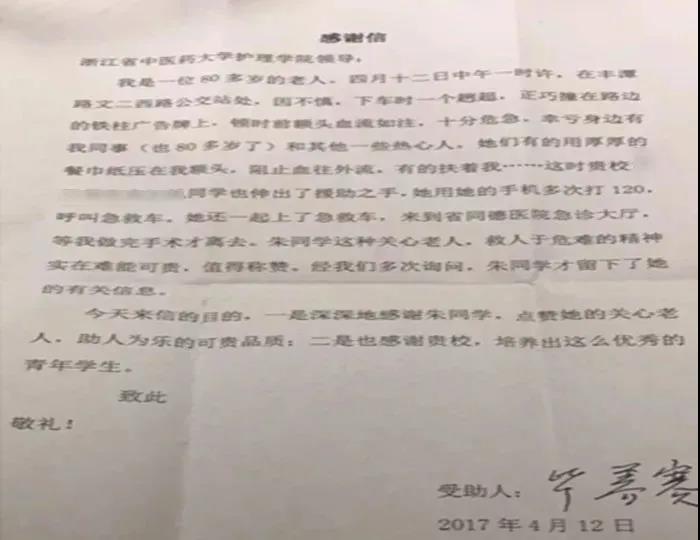 感谢信
浙江省中医药大学护理学院领导:
我是一位80多岁的老人。四月十二日中午一时许,在丰潭
路文二西路公交站处,因不慎,下车时一个趔趄,正巧撞在路边
的铁柱广告牌上,顿时前额头血流如注,十分危急,幸亏身边有
我同事(也80多岁了)和其他一些热心人。她们有的用厚厚的
餐巾纸压在我额头,阻止血往外流,有的扶着我……这时贵校
同学也伸出了援助之手。她用她的手机多次打120,
呼叫急救车。她还一起上了急救车,来到省同德医院急诊大厅,
等我做完手术才离去。朱同学这种关心老人,救人于危难的精神
实在难能可贵,值得称赞。经我们多次询问,朱同学才留下了她
的有关信息。
今天来信的目的,一是深深地感谢朱同学,点赞她的关心老
人,助人为乐的可贵品质;二是也感谢贵校,培养出这么优秀的
青年学生。
致此
敬礼!
受助人:毕
2017年4月12日